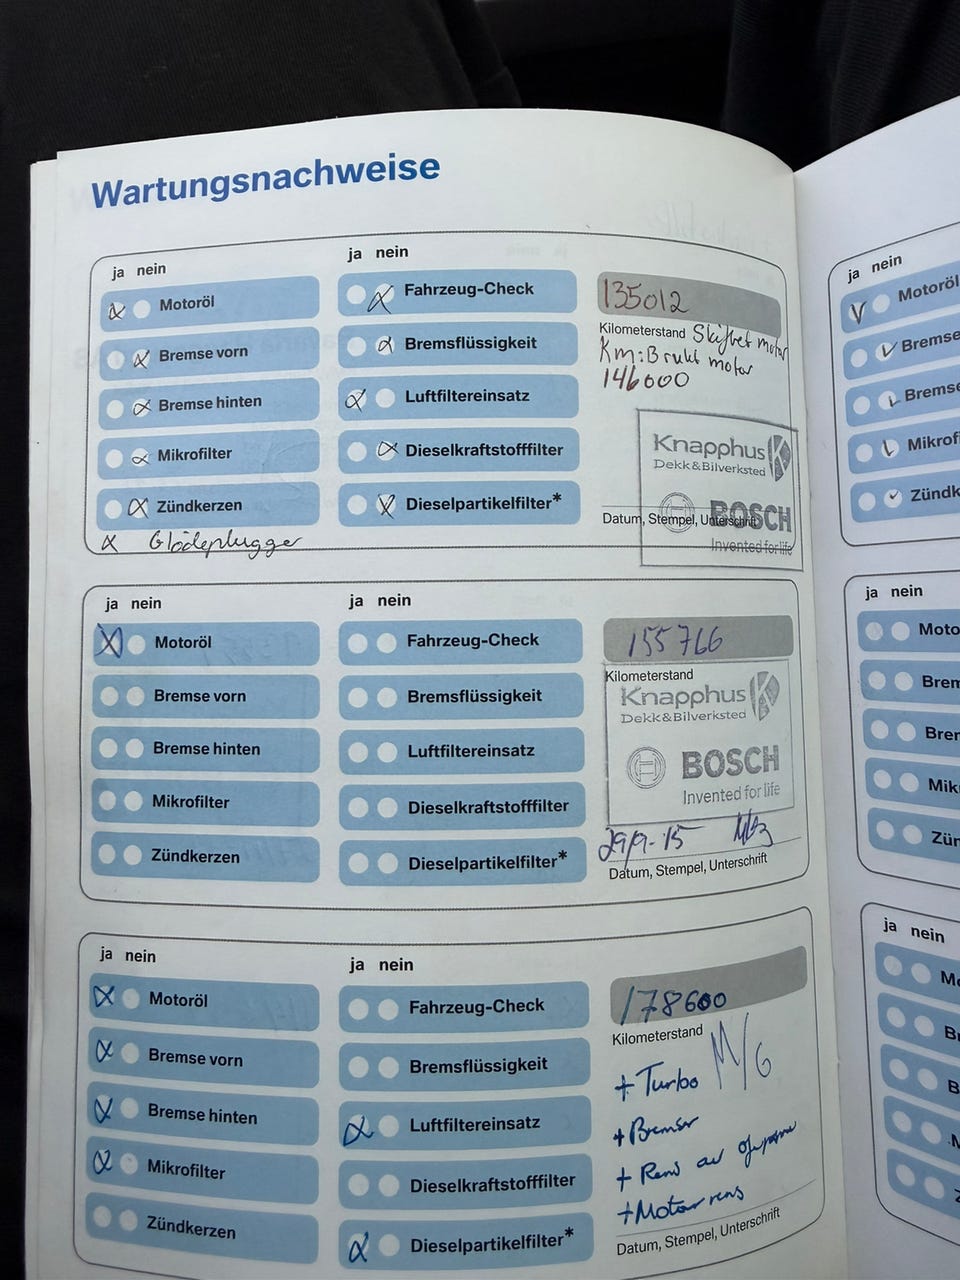 Wartungsnachweise
ja nein
Motoröl
Bremse vorn
Bremse hinten
Mikrofilter
Zündkerzen
x Glödeplugger
ja nein
Fahrzeug-Check
Bremsflüssigkeit
Luftfiltereinsatz
Dieselkraftstofffilter
Dieselpartikelfilter*
135012
Kilometerstand Skiftet motor
Km: Brukt motor
146000
Knapphus
Dekk&Bilverksted
BOSCH
Datum, Stempel, Unterschrift
Invented for life
ja nein
Motoröl
Bremse vorn
Bremse hinten
Mikrofilter
Zündkerzen
ja nein
Fahrzeug-Check
Bremsflüssigkeit
Luftfiltereinsatz
Dieselkraftstofffilter
Dieselpartikelfilter*
155766
Kilometerstand
Knapphus
Dekk&Bilverksted
BOSCH
Invented for life
29/9-15
Datum, Stempel, Unterschrift
ja nein
Motoröl
Bremse vorn
Bremse hinten
Mikrofilter
Zündkerzen
ja nein
Fahrzeug-Check
Bremsflüssigkeit
Luftfiltereinsatz
Dieselkraftstofffilter
Dieselpartikelfilter*
178600
Kilometerstand
M/G
+ Turbo
+ Bremser
+ Rens av
+ Motor rens
Datum, Stempel, Unterschrift
ja nein
Motoröl
Bremse
Bremse
Mikrofi
Zündk
ja nein
Moto
Brem
Brer
Mik
Zür
ja nein
Mo
B
B
M
Z